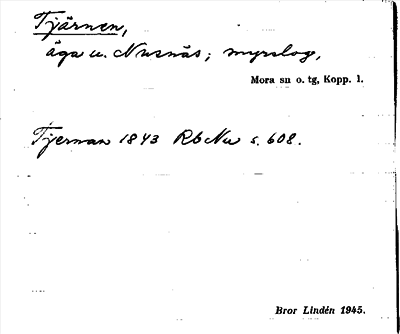 Tjärnen,
äga u. Nusnäs; myrslog,
Mora sn o. tg, Kopp. l.
Tjernan 1843 RbNu s. 608.
Bror Lindén 1945.